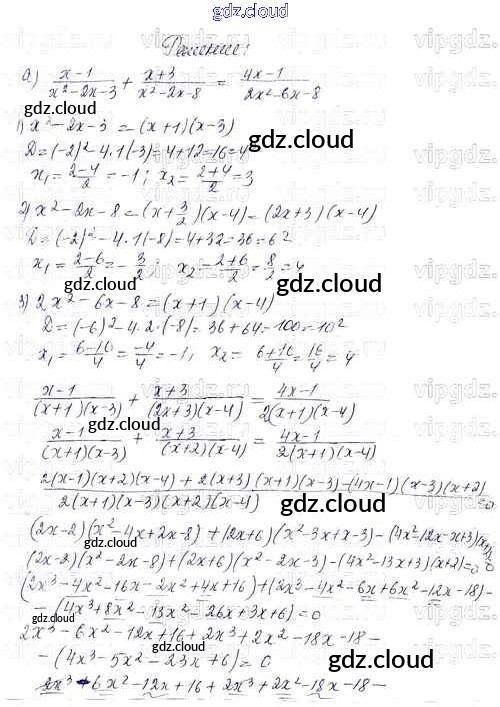 gdz.cloud
Решение:
а) x-1/x²-2x-3 + x+3/x²-2x-8 = 4x-1/2x²-6x-8
gdz.cloud
1) x²-2x-3 = (x+1)(x-3)
D=(-2)²-4·1(-3)=4+12=16=4²
x₁=2-4/2=-1; x₂=2+4/2=3
2) x²-2x-8=(x+3/2)(x-4)=(2x+3)(x-4)
D=(-2)²-4·1(-8)=4+32=36=6²
x₁=2-6/2=-3/2; x₂=2+6/2=8/2=4
3) 2x²-6x-8=(x+1)(x-4)
D=(-6)²-4·2·(-8)=36+64=100=10²
x₁=6-10/4=-4/4=-1, x₂=6+10/4=16/4=4
x-1/(x+1)(x-3) + x+3/(2x+3)(x-4) = 4x-1/2(x+1)(x-4)
x-1/(x+1)(x-3) + x+3/(x+2)(x-4) = 4x-1/2(x+1)(x-4)
2(x-1)(x+2)(x-4)+2(x+3)(x+1)(x-3)-(4x-1)(x-3)(x+2)/2(x+1)(x-3)(x+2)(x-4) =0
(2x-2)(x²-4x+2x-8)+(2x+6)(x²-3x+x-3)-(4x²-12x-x+3)
(2x-2)(x²-2x-8)+(2x+6)(x²-2x-3)-(4x²-13x+3)(x+2)=0
(2x³-4x²-16x-2x²+4x+16)+(2x³-4x²-6x+6x²-12x-18)-
-(4x³+8x²-13x²-26x+3x+6)=0
2x³-6x²-12x+16+2x³+2x²-18x-18-
-(4x³-5x²-23x+6)=0
2x³-6x²-12x+16+2x³+2x²-18x-18-